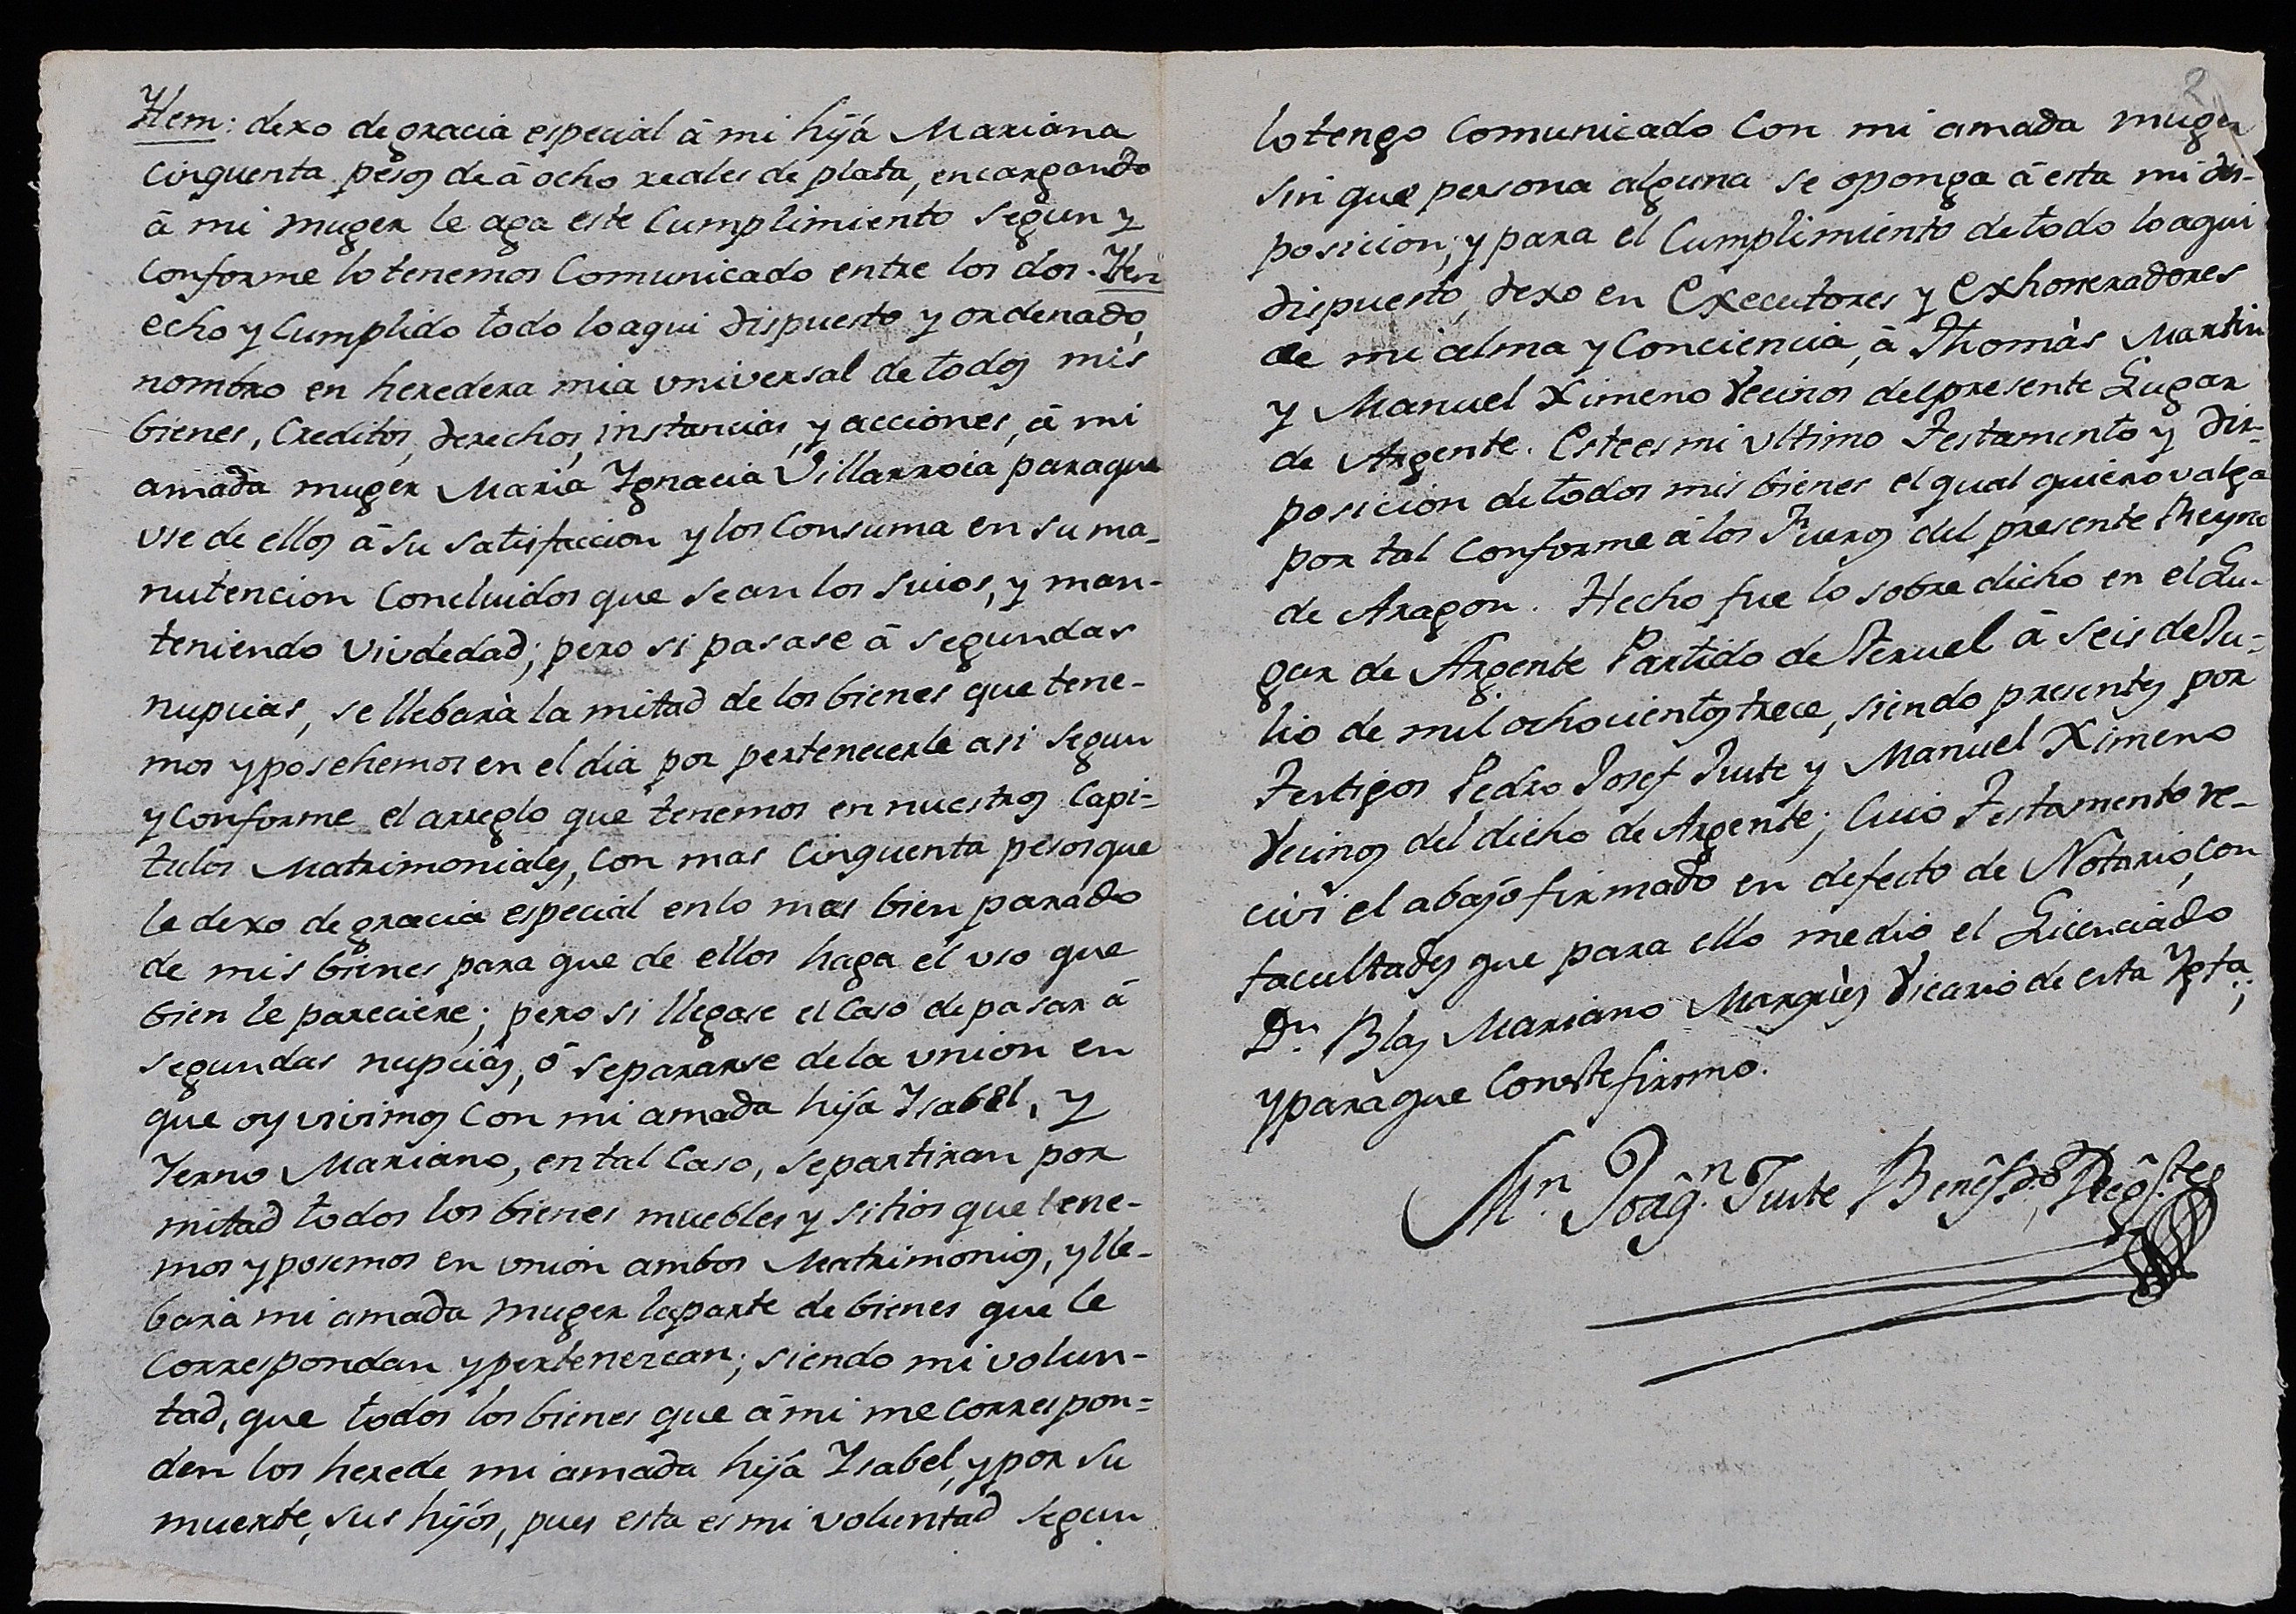 Ytem: dexo de gracia especial â mi hijá Mariana
Cinquenta pesos de â ocho reales de plata, encargando
â mi muger le aga este Cumplimiento segun y
conforme lo tenemos Comunicado entre los dos. Yten
echo y Cumplido todo lo aqui dispuesto y ordenado,
nombro en heredera mia universal de todos mis
bienes, Creditos, derechos, instancias, y acciones, â mi
amada muger Maria Ygnacia Villarroia paraque
use de ellos â su satisfaccion y los Consuma en su ma-
nutencion Concluidos que sean los suios, y man-
teniendo viudedad; pero si pasase â segundas
nupcias, se llebarà la mitad de los bienes que tene-
mos y posehemos en el dia por pertenecerle asi segun
y conforme el arreglo que tenemos en nuestros Capi-
tulos Matrimoniales, con mas Cinquenta pesos que
le dexo de gracia especial en lo mas bien parado
de mis bienes para que de ellos haga el uso que
bien le pareciere; pero si llegase el Caso de pasar â
segundas nupcias, ô separarse de la union en
que oy vivimos con mi amada hija Ysabel, y
Yerno Mariano, en tal Caso, se partiran por
mitad todos los bienes muebles y sitios que tene-
mos y posemos en union ambos Matrimonios, y lle-
bará mi amada muger la parte de bienes que le
Correspondan y pertenezcan; siendo mi volun-
tad, que todos los bienes que â mi me correspon=
den los herede mi amada hijá Ysabel, y por su
muerte, sus hijós, pues esta es mi voluntad segun
2
lo tengo Comunicado Con mi amada muger
sin que persona alguna se oponga â esta mi dis-
posicion; y para el Cumplimiento de todo lo aqui
dispuesto, dexo en Executores y Exhoneradores
de mi alma y Conciencia, â Thomàs Martin
y Manuel Ximeno Vecinos del presente Lugar
de Argente. Este es mi ultimo Testamento y dis-
posicion de todos mis bienes el qual quiero valga
por tal Conforme â los Fueros del presente Reyno
de Aragon. Hecho fue lo sobre dicho en el Lu-
gar de Argente Partido de Teruel â seis de Ju-
lio de mil ochocientos trece, siendo presentes por
Testigos Pedro Josef Juste y Manuel Ximeno
Vecinos del dicho de Argente; Cuio Testamento re-
civi el abajo firmado en defecto de Notario, con
facultades que para ello medio el Licenciado
Dn. Blas Mariano Marquès Vicario de esta Ygla;
y para que Conste firmo.
Mn. Joaqn. Juste Benefdo. Regte